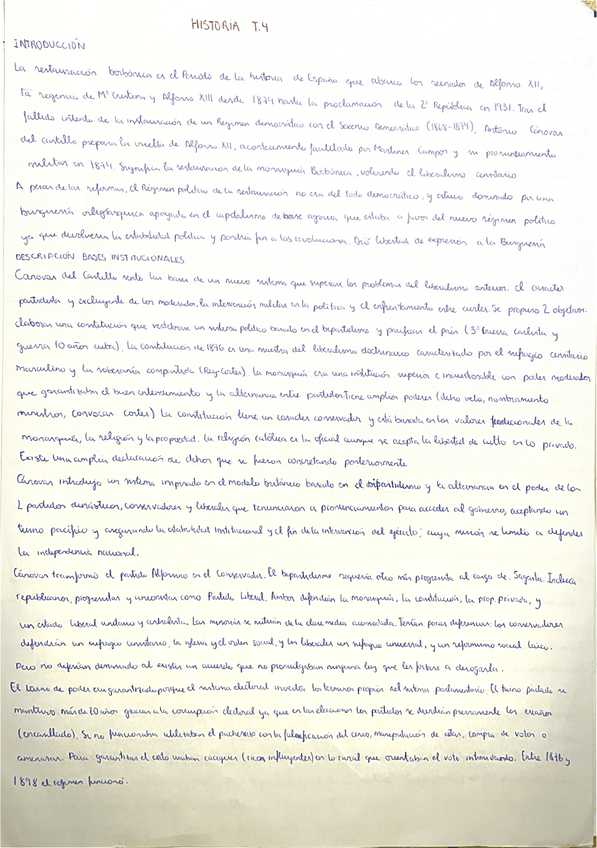 HISTORIA T.4
INTRODUCCIÓN
La restauración borbónica es el Periodo de la historia de España que abarca los reinados de Alfonso XII,
la regencia de Mª Cristina y Alfonso XIII desde 1874 hasta la proclamación de la 2ª República en 1931. Tras el
fallido intento de la instauración de un Régimen democrático con el Sexenio Democrático (1868-1874), Antonio Cánovas
del castillo prepara la vuelta de Alfonso XII, acontecimiento facilitado por Martínez Campos y su pronunciamiento
militar en 1874. Significa la restauración de la monarquía Borbónica, volviendo el liberalismo censitario
A pesar de las reformas, el Régimen político de la restauración no era del todo democrático, y estuvo dominado por una
burguesía oligárquica apoyada en el capitalismo de base agraria que estaba a favor del nuevo régimen político
ya que devolvería la estabilidad política y pondría fin a las revoluciones. Dió libertad de expresión a la Burguesía
DESCRIPCIÓN BASES INSTITUCIONALES
Cánovas del Castillo sentó las bases de un nuevo sistema que superase los problemas del liberalismo anterior: el carácter
partidista y excluyente de los moderados, la intervención militar en la política y el enfrentamiento entre cortes. Se propuso 2 objetivos:
elaborar una constitución que vertebrase un sistema político basado en el bipartidismo y pacificar el país (3ª Guerra carlista y
guerra 10 años cuba). La constitución de 1876 es una muestra del liberalismo doctrinario caracterizado por el sufragio censitario
masculino y la soberanía compartida (Rey-Cortes). La monarquía era una institución superior e incuestionable con poder moderador
que garantizaba el buen entendimiento y la alternancia entre partidos. Tiene amplios poderes (dcho veto, nombramiento
ministros, convocar cortes) La constitución tiene un carácter conservador y está basada en los valores tradicionales de la
monarquía, la religión y la propiedad. La religión católica es la oficial aunque se acepta la libertad de culto en lo privado.
Existe una amplia declaración de dchos que se fueron concretando posteriormente
Cánovas introdujo un sistema inspirado en el modelo británico basado en el bipartidismo y la alternancia en el poder de los
2 partidos dinásticos, conservadores y liberales que renunciaron a pronunciamientos para acceder al gobierno, aceptando un
turno pacífico y asegurando la estabilidad institucional y el fin de la intervención del ejército; cuya misión se limitó a defender
la independencia nacional.
Cánovas transformó el partido Alfonsino en el Conservador. El bipartidismo requería otro más progresista al cargo de Sagasta. Incluía
republicanos, progresistas y unionistas como Partido Liberal. Ambos defendían la monarquía, la constitución, la prop. privada, y
un estado liberal unitario y centralista. Las minorías se nutrían de la clase media acomodada. Tenían pocas diferencias: los conservadores
defendían un sufragio censitario, la iglesia y el orden social, y los liberales un sufragio universal, y un reformismo social laico.
Pero no diferían demasiado al existir un acuerdo que no promulgaban ninguna ley que les forzase a derogarla.
El turno de poder era garantizado porque el sistema electoral invertía los términos propios del sistema parlamentario El turno pactado se
mantuvo más de 20 años gracias a la corrupción electoral ya que en las elecciones los partidos se dividían previamente los escaños
(encasillado). Si no funcionaba utilizaban el pucherazo con la falsificación del censo, manipulación de actas, compra de votos o
amenazas. Para garantizar el éxito usaban caciques (ricos influyentes) en lo rural que orientaban el voto intimidando. Entre 1876 y
1898 el régimen funcionó.